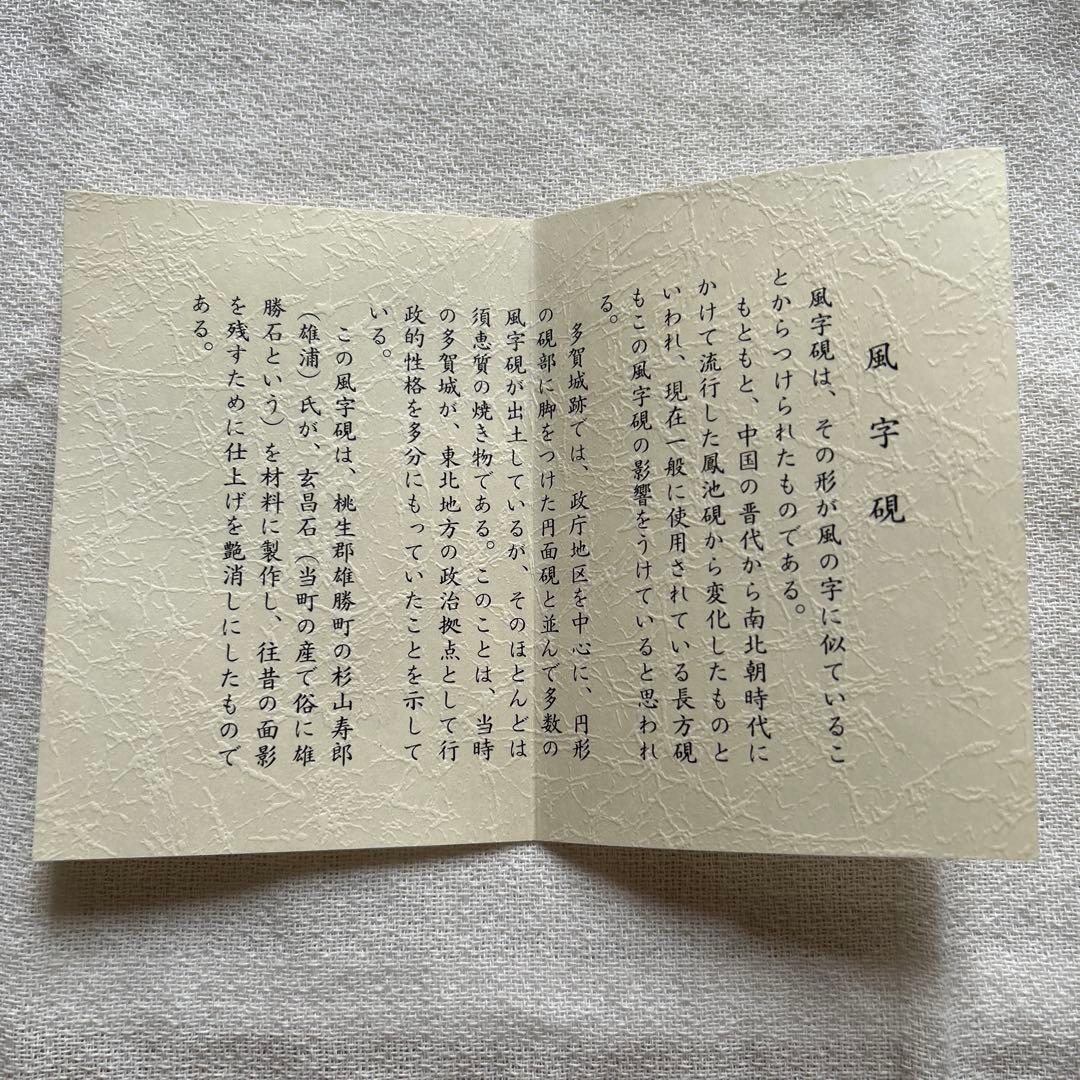 風字硯
風字硯は、その形が風の字に似ているこ
とからつけられたものである。
もともと、中国の晋代から南北朝時代に
かけて流行した鳳池硯から変化したものと
いわれ、現在一般に使用されている長方硯
もこの風字硯の影響をうけていると思われ
る。
多賀城跡では、政庁地区を中心に、円形
の硯部に脚をつけた円面硯と並んで多数の
風字硯が出土しているが、そのほとんどは
須恵質の焼き物である。このことは、当時
の多賀城が、東北地方の政治拠点として行
政的性格を多分にもっていたことを示して
いる。
この風字硯は、桃生郡雄勝町の杉山寿郎
（雄浦）氏が、玄昌石（当町の産で俗に雄
勝石という）を材料に製作し、往昔の面影
を残すために仕上げを艶消しにしたもので
ある。